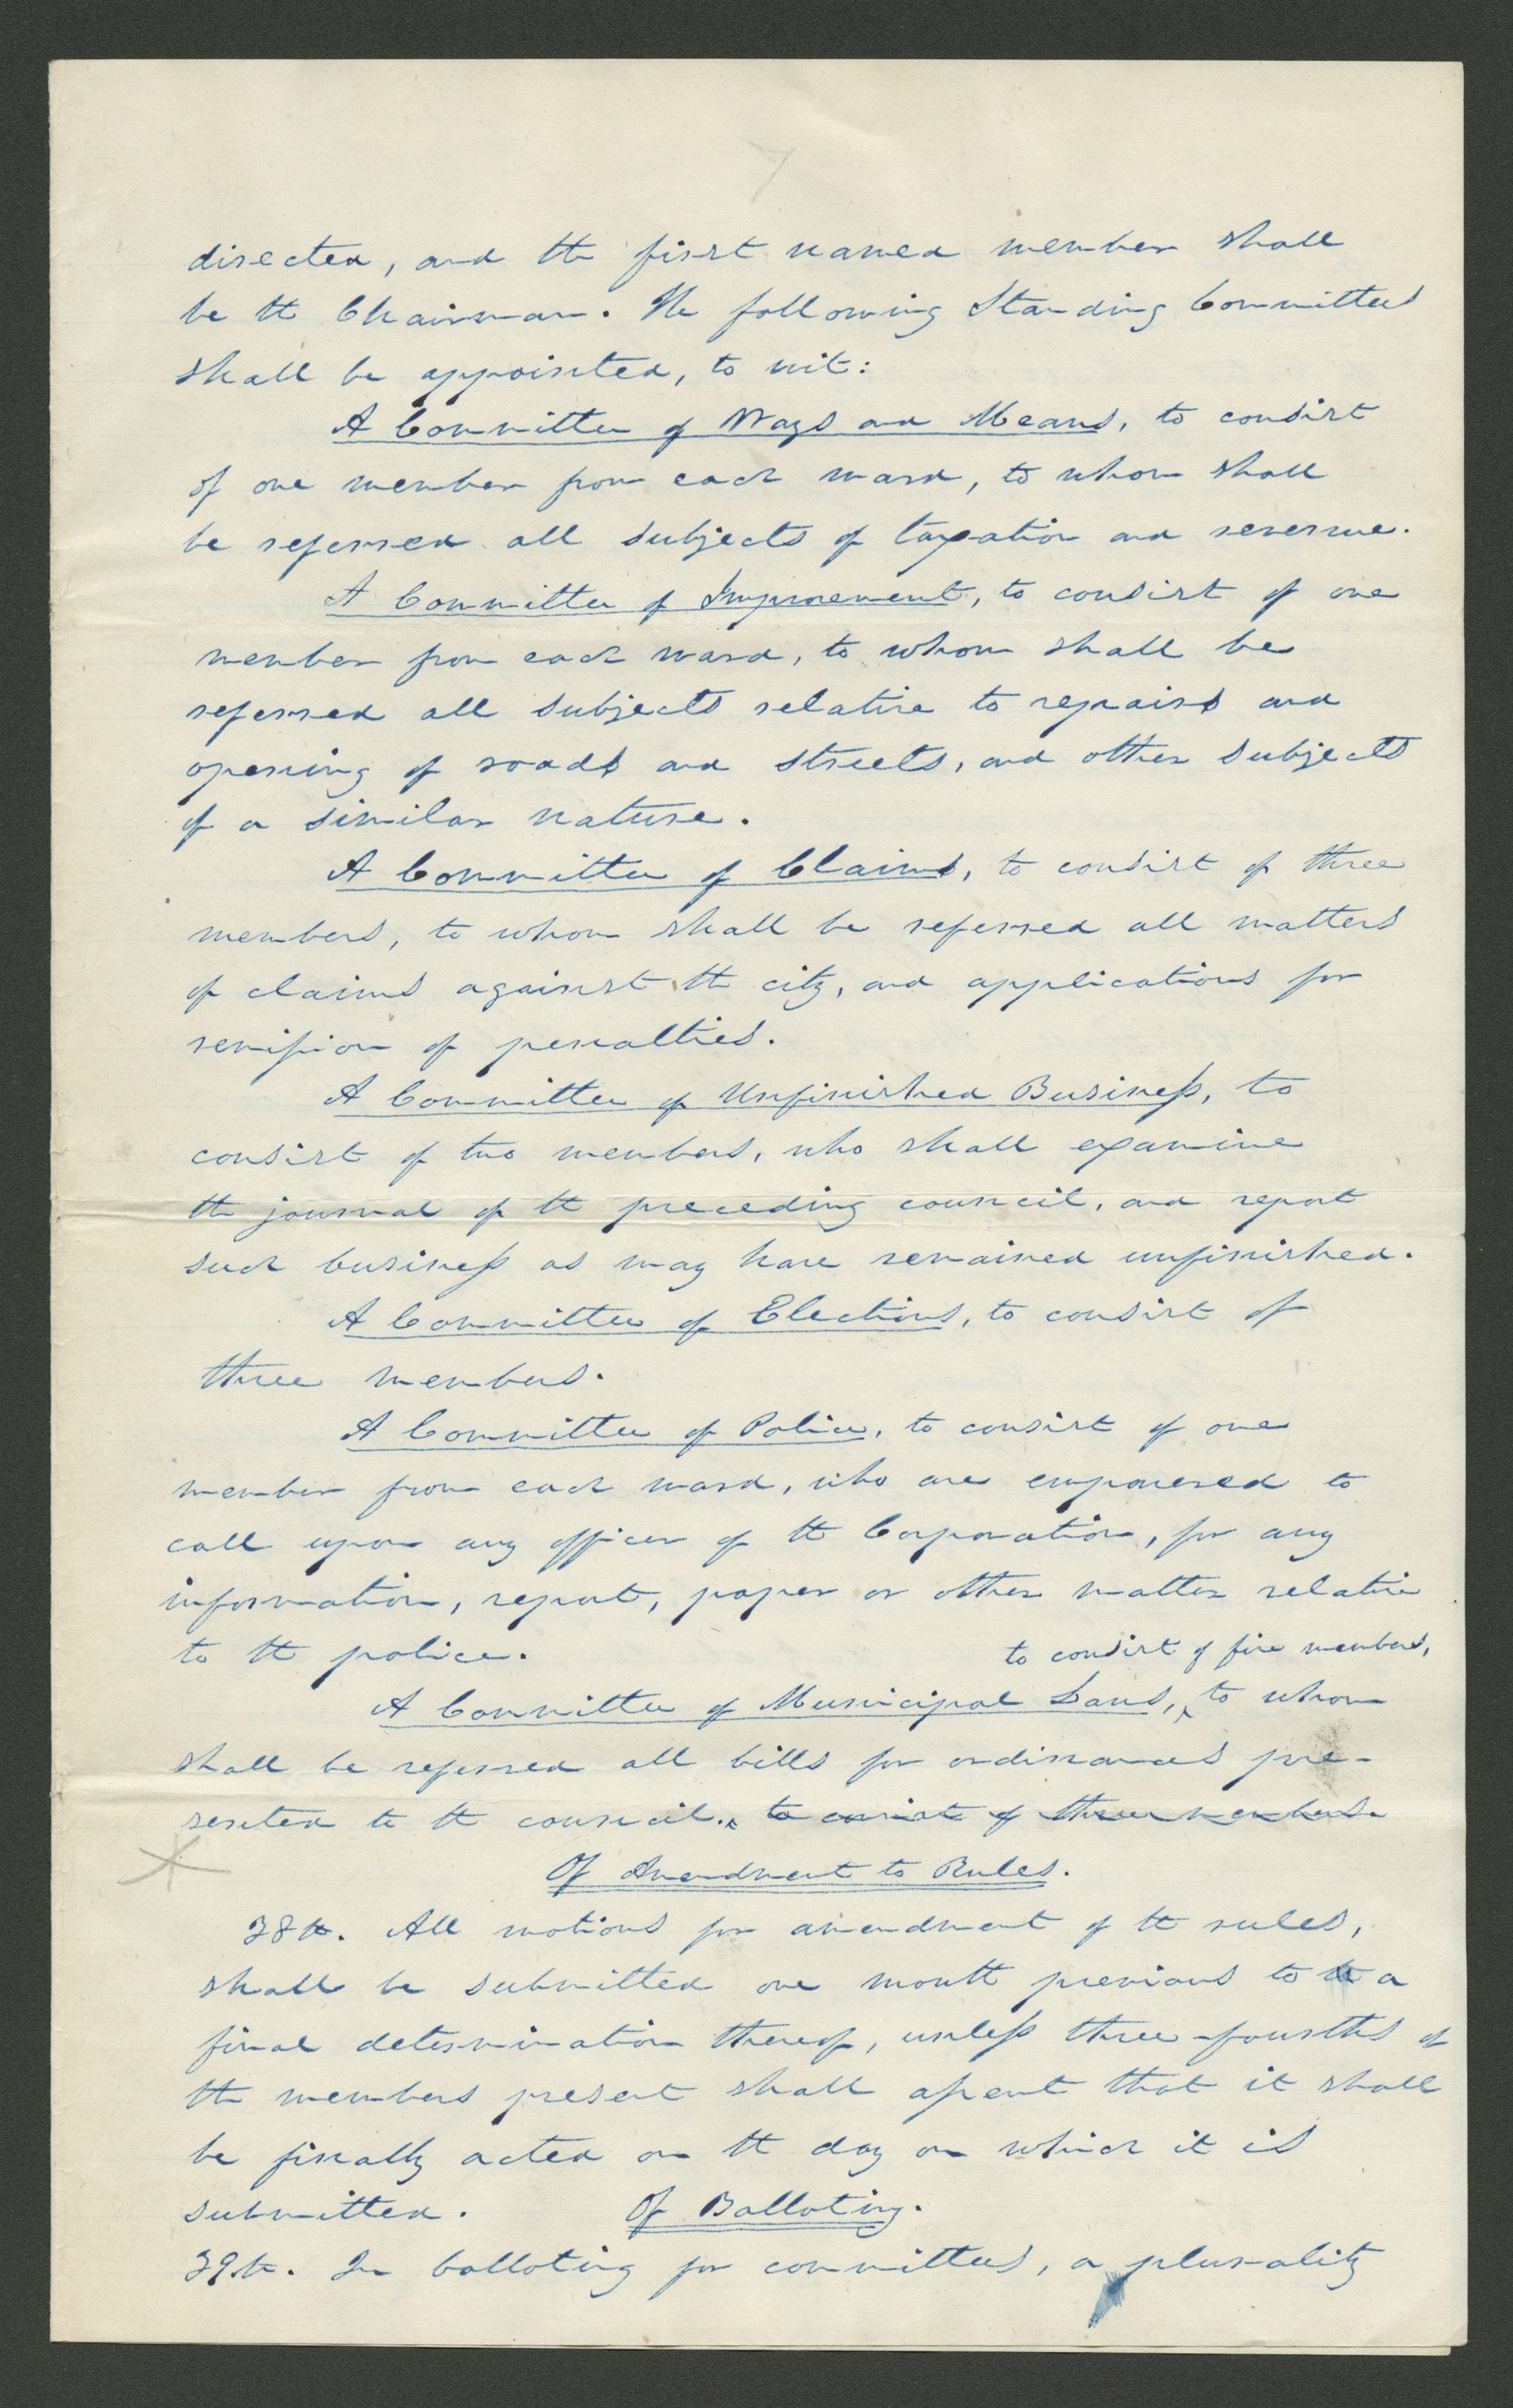 7
directed, and the first named member shall
be the Chairman. The following Standing Committees
shall be appointed, to wit:
A Committee of Ways and Means, to consist
of one member from each ward, to whom shall
be referred all subjects of taxation and revenue.
A Committee of Improvement, to consist of one
member from each ward, to whom shall be
referred all subjects relative to repairs and
opening of roads and streets, and other subjects
of a similar nature.
A Committee of Claims, to consist of three
members, to whom shall be referred all matters
of claims against the city, and applications for
remission of penalties.
A Committee of Unfinished Business, to
consist of two members, who shall examine
the journal of the preceding council, and report
such business as may have remained unfinished.
A Committee of Elections, to consist of
three members.
A Committee of Police, to consist of one
member from each ward, who are empowered to
call upon any officer of the Corporation, for any
information, report, paper or other matter relative
to the police.
to consist of five members,
A Committee of Municipal Laws, ‸ to whom
shall be referred all bills for ordinances pre-
sented to the council. ‸ to consist of three members.
Of Amendment to Rules.
38th. All motions for amendment of the rules,
shall be submitted one month previous to the a
final determination thereof, unless three-fourths of
the members present shall assent that it shall
be finally acted on the day on which it is
submitted. Of Balloting.
39th. In balloting for committees, a plurality